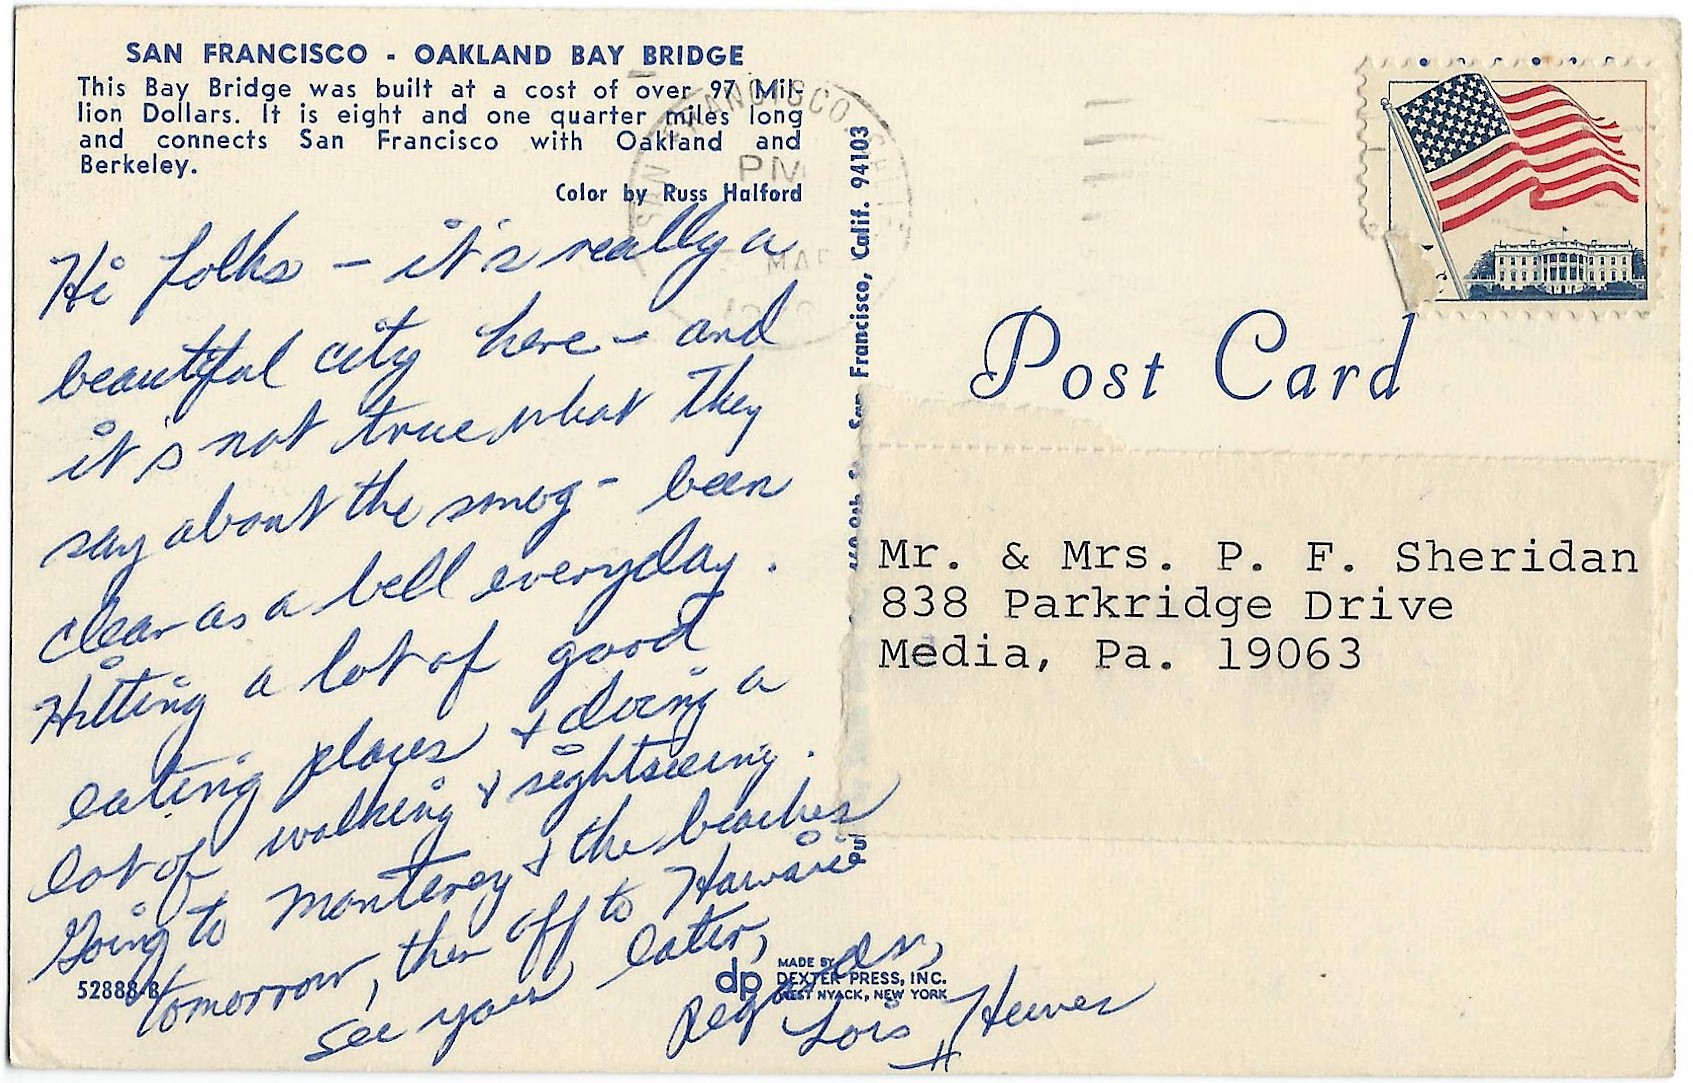 SAN FRANCISCO - OAKLAND BAY BRIDGE
This Bay Bridge was built at a cost of over 97 Mil-
lion Dollars. It is eight and one quarter miles long
and connects San Francisco with Oakland and
Berkeley.
Color by Russ Halford
SAN FRANCISCO CALIF
PM
MAR
Hi folks - it's really a
beautiful city here - and
it's not true what they
say about the smog - been
clear as a bell everyday.
Hitting a lot of good
eating places & doing a
lot of walking & sightseeing.
Going to Monterey & the beaches
tomorrow, then off to Hawaii
see you later,
Regards,
Lois
52888-B
dp MADE BY
DEXTER PRESS, INC.
WEST NYACK, NEW YORK
San Francisco, Calif. 94103
Post Card
Mr. & Mrs. P. F. Sheridan
838 Parkridge Drive
Media, Pa. 19063